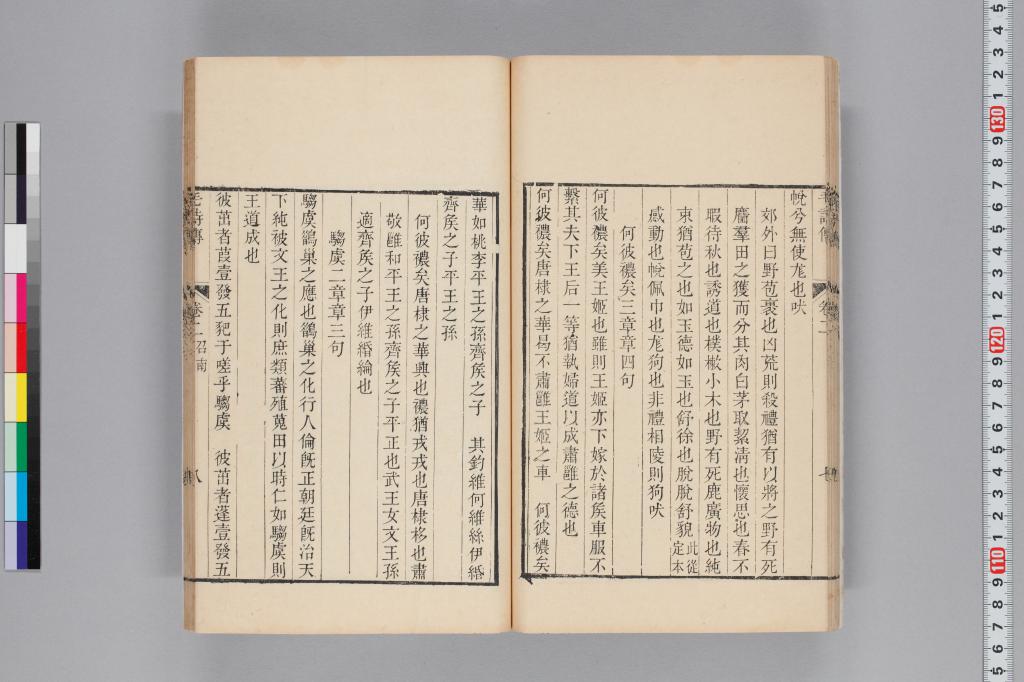 帨兮無使尨也吠
郊外曰野苞裹也凶荒則殺禮猶有以將之野有死
麕羣田之獲而分其肉白茅取絜清也懷思也春不
暇待秋也誘道也樸樕小木也野有死鹿廣物也純
束猶苞之也如玉德如玉也舒徐也脫脫舒貌此從定本
感動也帨佩巾也尨狗也非禮相陵則狗吠
何彼襛矣三章章四句
何彼襛矣美王姬也雖則王姬亦下嫁於諸矦車服不
繫其夫下王后一等猶執婦道以成肅雝之德也
何彼襛矣唐棣之華曷不肅雝王姬之車 何彼襛矣
華如桃李平王之孫齊矦之子 其釣維何維絲伊緡
齊矦之子平王之孫
何彼襛矣唐棣之華興也襛猶戎戎也唐棣栘也肅
敬雝和平王之孫齊矦之子平正也武王女文王孫
適齊矦之子伊維緡綸也
騶虞二章章三句
騶虞鵲巢之應也鵲巢之化行人倫旣正朝廷旣治天
下純被文王之化則庶類蕃殖蒐田以時仁如騶虞則
王道成也
彼茁者葭壹發五豝于嗟乎騶虞 彼茁者蓬壹發五
毛詩傳 卷二召南 八